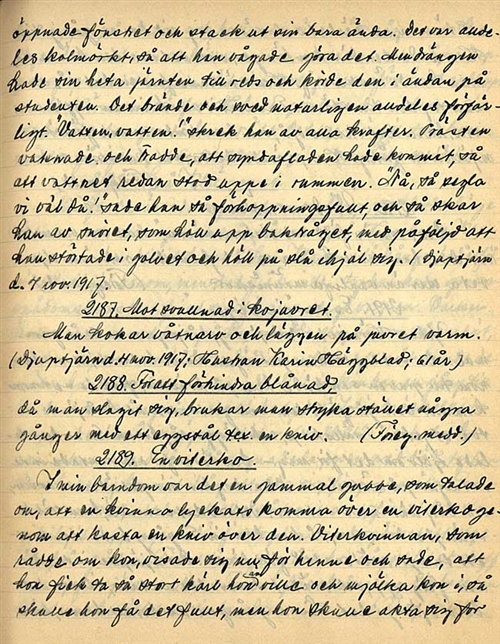 öppnade fönstret och stack ut sin bara ända. Det var alde-
les kolmörkt, så att han vågade göra det. Men drängen
hade sin heta järnten till reds och körde den i ändan på
studenten. Det brände och sved naturligen aldeles förfär-
ligt. "Vatten, vatten!" skrek han av alla krafter. Prästen
vaknade, och trodde, att syndafloden hade kommit, så
att vattnet redan stod uppe i rummen. "Nå, så segla
vi väl då!" sade han så förhoppningsfullt, och så skar
han av snöret, som höll upp baktråget, med påföljd att
han störtade i golvet och höll på slå ihjäl sig. (Djuptjärn
d. 4 nov. 1917.
2187. Mot svullnad i kojuvret.
Man kokar våtnarv och lägger på juvret varm.
(Djuptjärn d. 4 nov. 1917; Hustrun Karin Häggblad; 61 år)
2188. För att förhindra blånad,
då man slagit sig, brukar man stryka stället några
gånger med ett eggstål t.ex. en kniv. (Föreg. medd.)
2189. En viterko.
I min barndom var det en gammal gubbe, som talade
om, att en kvinna lyckats komma över en viterko ge-
nom att kasta en kniv över den. Viterkvinnan, som
rådde om kon, visade sig nu för henne och sade, att
hon fick ta så stort kärl hon ville och mjölka kon i, så
skulle hon få det fullt, men hon skulle akta sig för